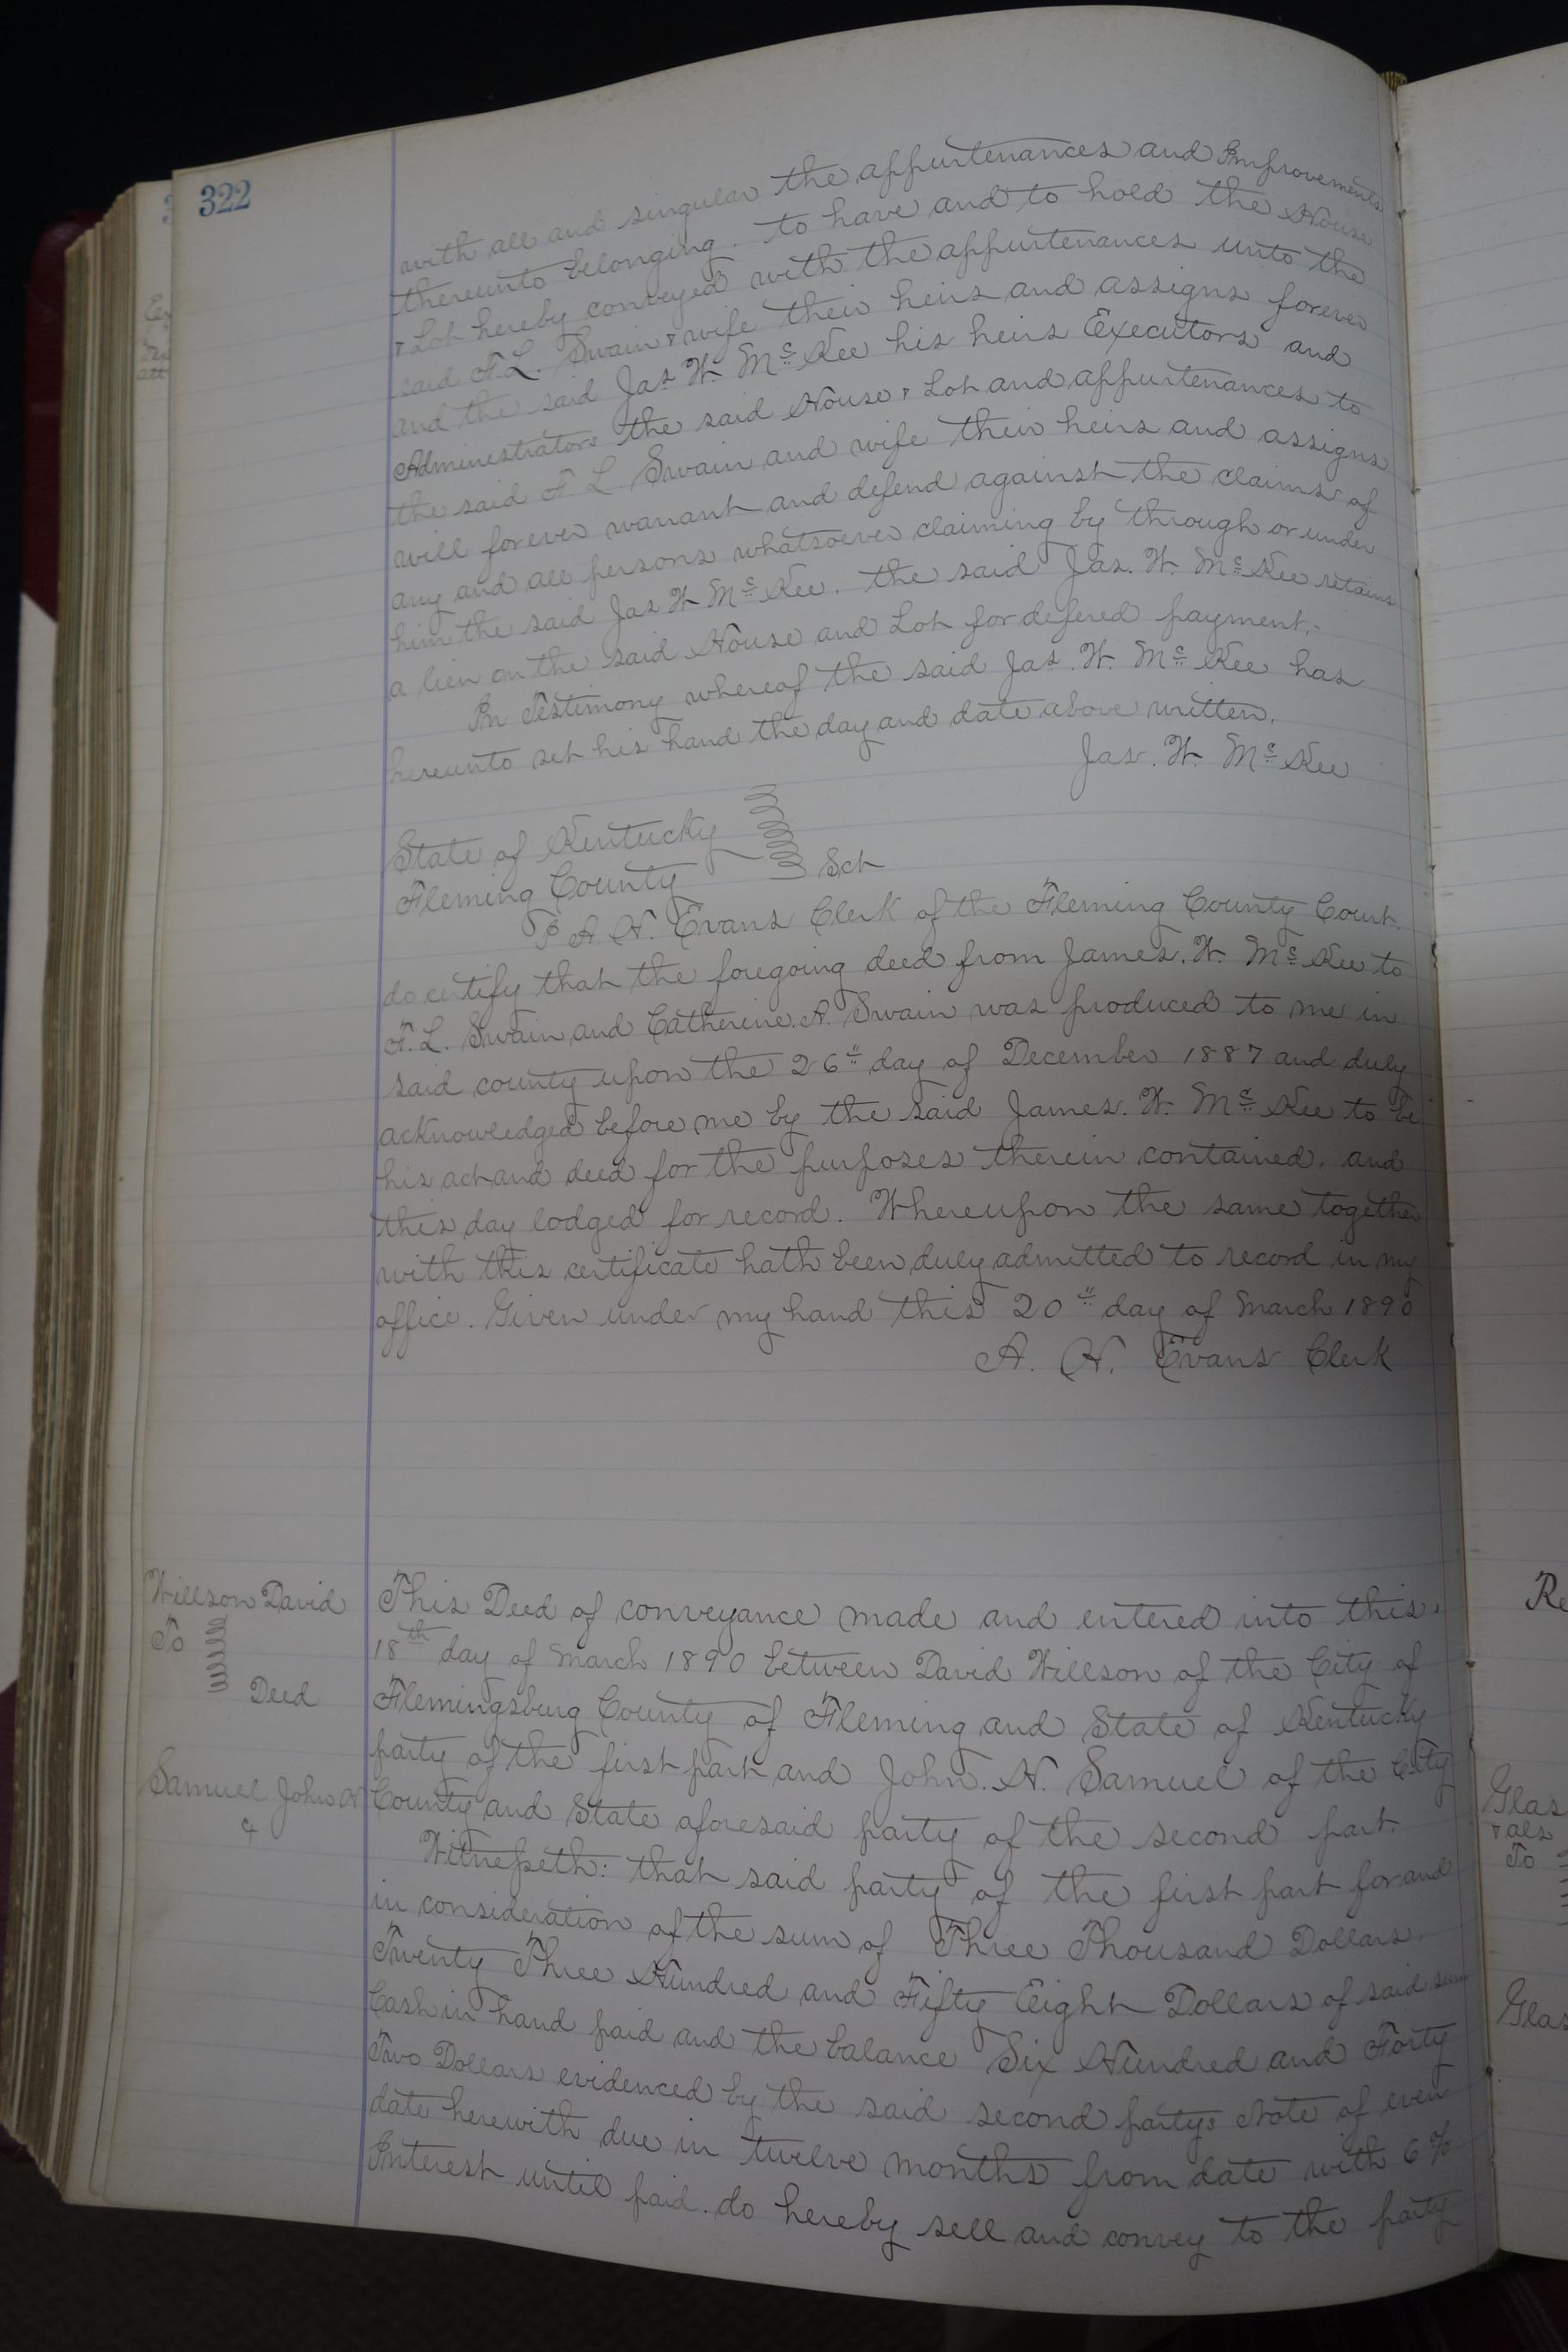 322
with all and singular the appurtenances and Improvements
thereunto belonging. To have and to hold the House
& Lot hereby conveyed with the appurtenances unto the
said F. L. Swain & wife their heirs and assigns forever
and the said Jas W. Mc Kee his heirs Executors and
Administrators the said House & Lot and appurtenances to
the said F. L. Swain and wife their heirs and assigns
will forever warrant and defend against the claims of
any and all persons whatsoever claiming by through or under
him the said Jas W Mc Kee. the said Jas. W. Mc Kee retains
a lien on the said House and Lot for defered payment.-
In Testimony whereof the said Jas. W. Mc Kee has
hereunto set his hand the day and date above written.
Jas. W. Mc Kee
State of Kentucky
Fleming County Sct
I A. H. Evans Clerk of the Fleming County Court.
do certify that the foregoing deed from James. W. Mc Kee to
F. L. Swain and Catherine. A. Swain was produced to me in
said county upon the 26" day of December 1887 and duly
acknowledged before me by the said James. W. Mc Kee to be
his act and deed for the purposes therein contained. and
this day lodged for record. Whereupon the same together
with this certificate hath been duly admitted to record in my
office. Given under my hand this 20" day of March 1890
A. H. Evans Clerk
Willson David
To
Deed
Samuel John H
This Deed of conveyance made and entered into this.
18th day of March 1890 between David Willson of the City of
Flemingsburg County of Fleming and State of Kentucky
party of the first part and John. H. Samuel of the City
County and State aforesaid party of the second part.
Witnesseth: that said party of the first part for and
in consideration of the sum of Three Thousand Dollars.
Twenty Three Hundred and Fifty Eight Dollars of said sum
Cash in hand paid and the balance Six Hundred and Forty
Two Dollars evidenced by the said second partys Note of even
date herewith due in twelve months from date with 6 %
Interest until paid. do hereby sell and convey to the party
Re
Glas
& als
To
Glas